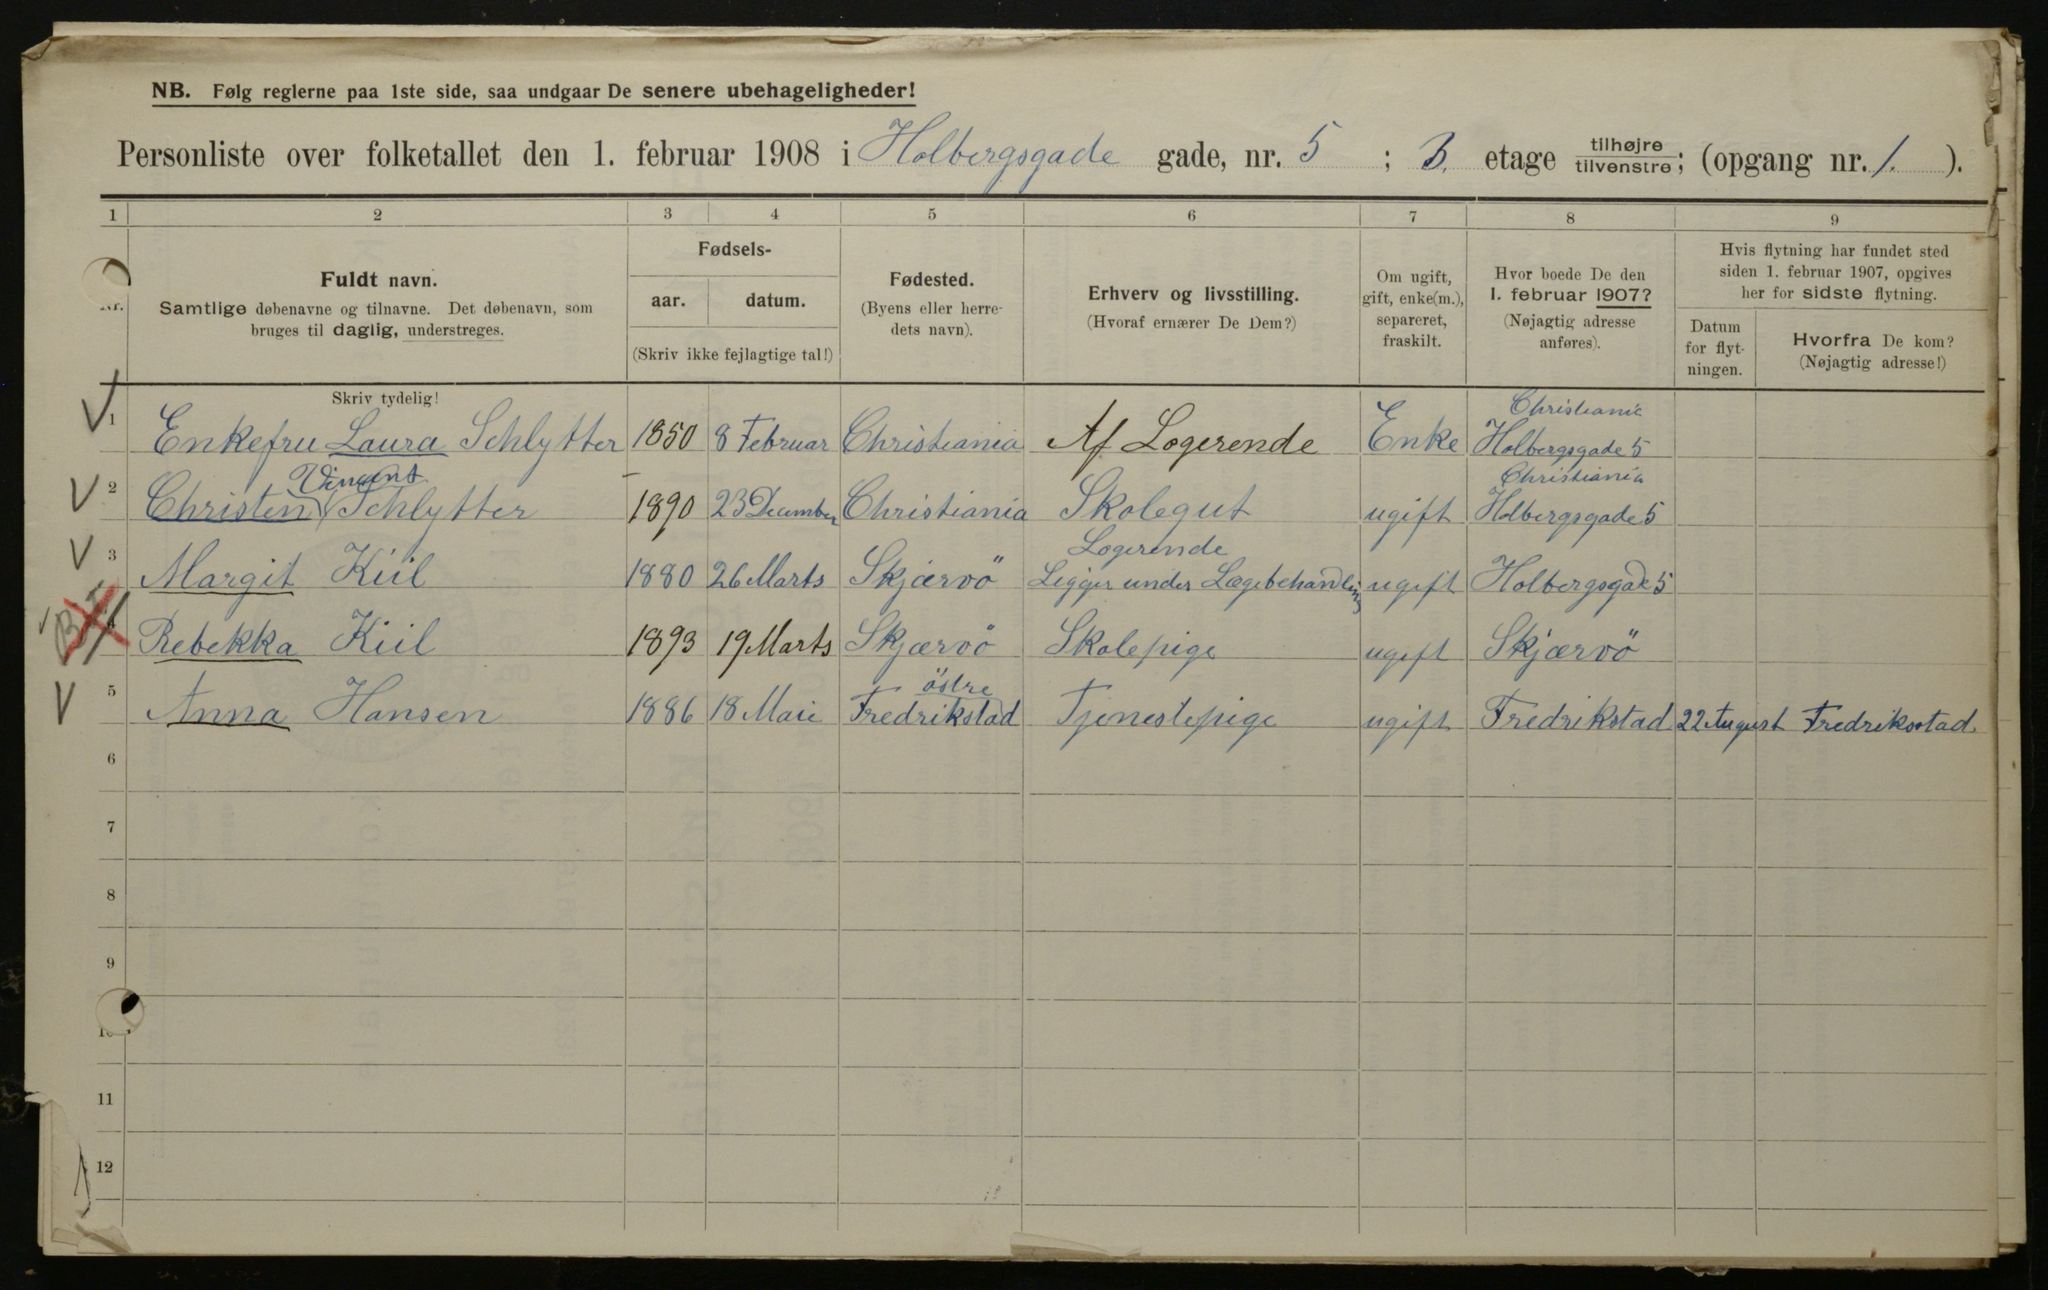 NB. Følg reglerne paa 1ste side, saa undgaar De senere ubehageligheder!
Personliste over folketallet den 1. februar 1908 i Holbergsgade gade, nr. 5 ; 3. etage tilhøjre tilvenstre; (opgang nr. 1. ).
1 2 3 4 5 6 7 8 9
Nr.
Fuldt navn.
Samtlige døbenavne og tilnavne. Det døbenavn, som
bruges til daglig, understreges.
Fødsels-
aar. datum.
(Skriv ikke fejlagtige tal!)
Fødested.
(Byens eller herre-
dets navn).
Erhverv og livsstilling.
(Hvoraf ernærer De Dem?)
Om ugift,
gift, enke(m.),
separeret,
fraskilt.
Hvor boede De den
1. februar 1907?
(Nøjagtig adresse
anføres).
Hvis flytning har fundet sted
siden 1. februar 1907, opgives
her for sidste flytning.
Datum
for flyt-
ningen.
Hvorfra De kom?
(Nøjagtig adresse!)
Skriv tydelig!
1 Enkefru Laura Schlytter 1850 8 Februar Christiania Af Logerende Enke Christiania Holbergsgade 5
2 Christen Vincent Schlytter 1890 23 December Christiania Skolegut ugift Christiania Holbergsgade 5
3 Margit Kiil 1880 26 Marts Skjærvö Logerende Ligger under Lægebehandling ugift Holbergsgade 5
4 Rebekka Kiil 1893 19 Marts Skjærvö Skolepige ugift Skjærvö
5 Anna Hansen 1886 18 Mai östre Fredrikstad Tjenestepige ugift Fredrikstad 22 August Fredriksstad
6
7
8
9
10
11
12